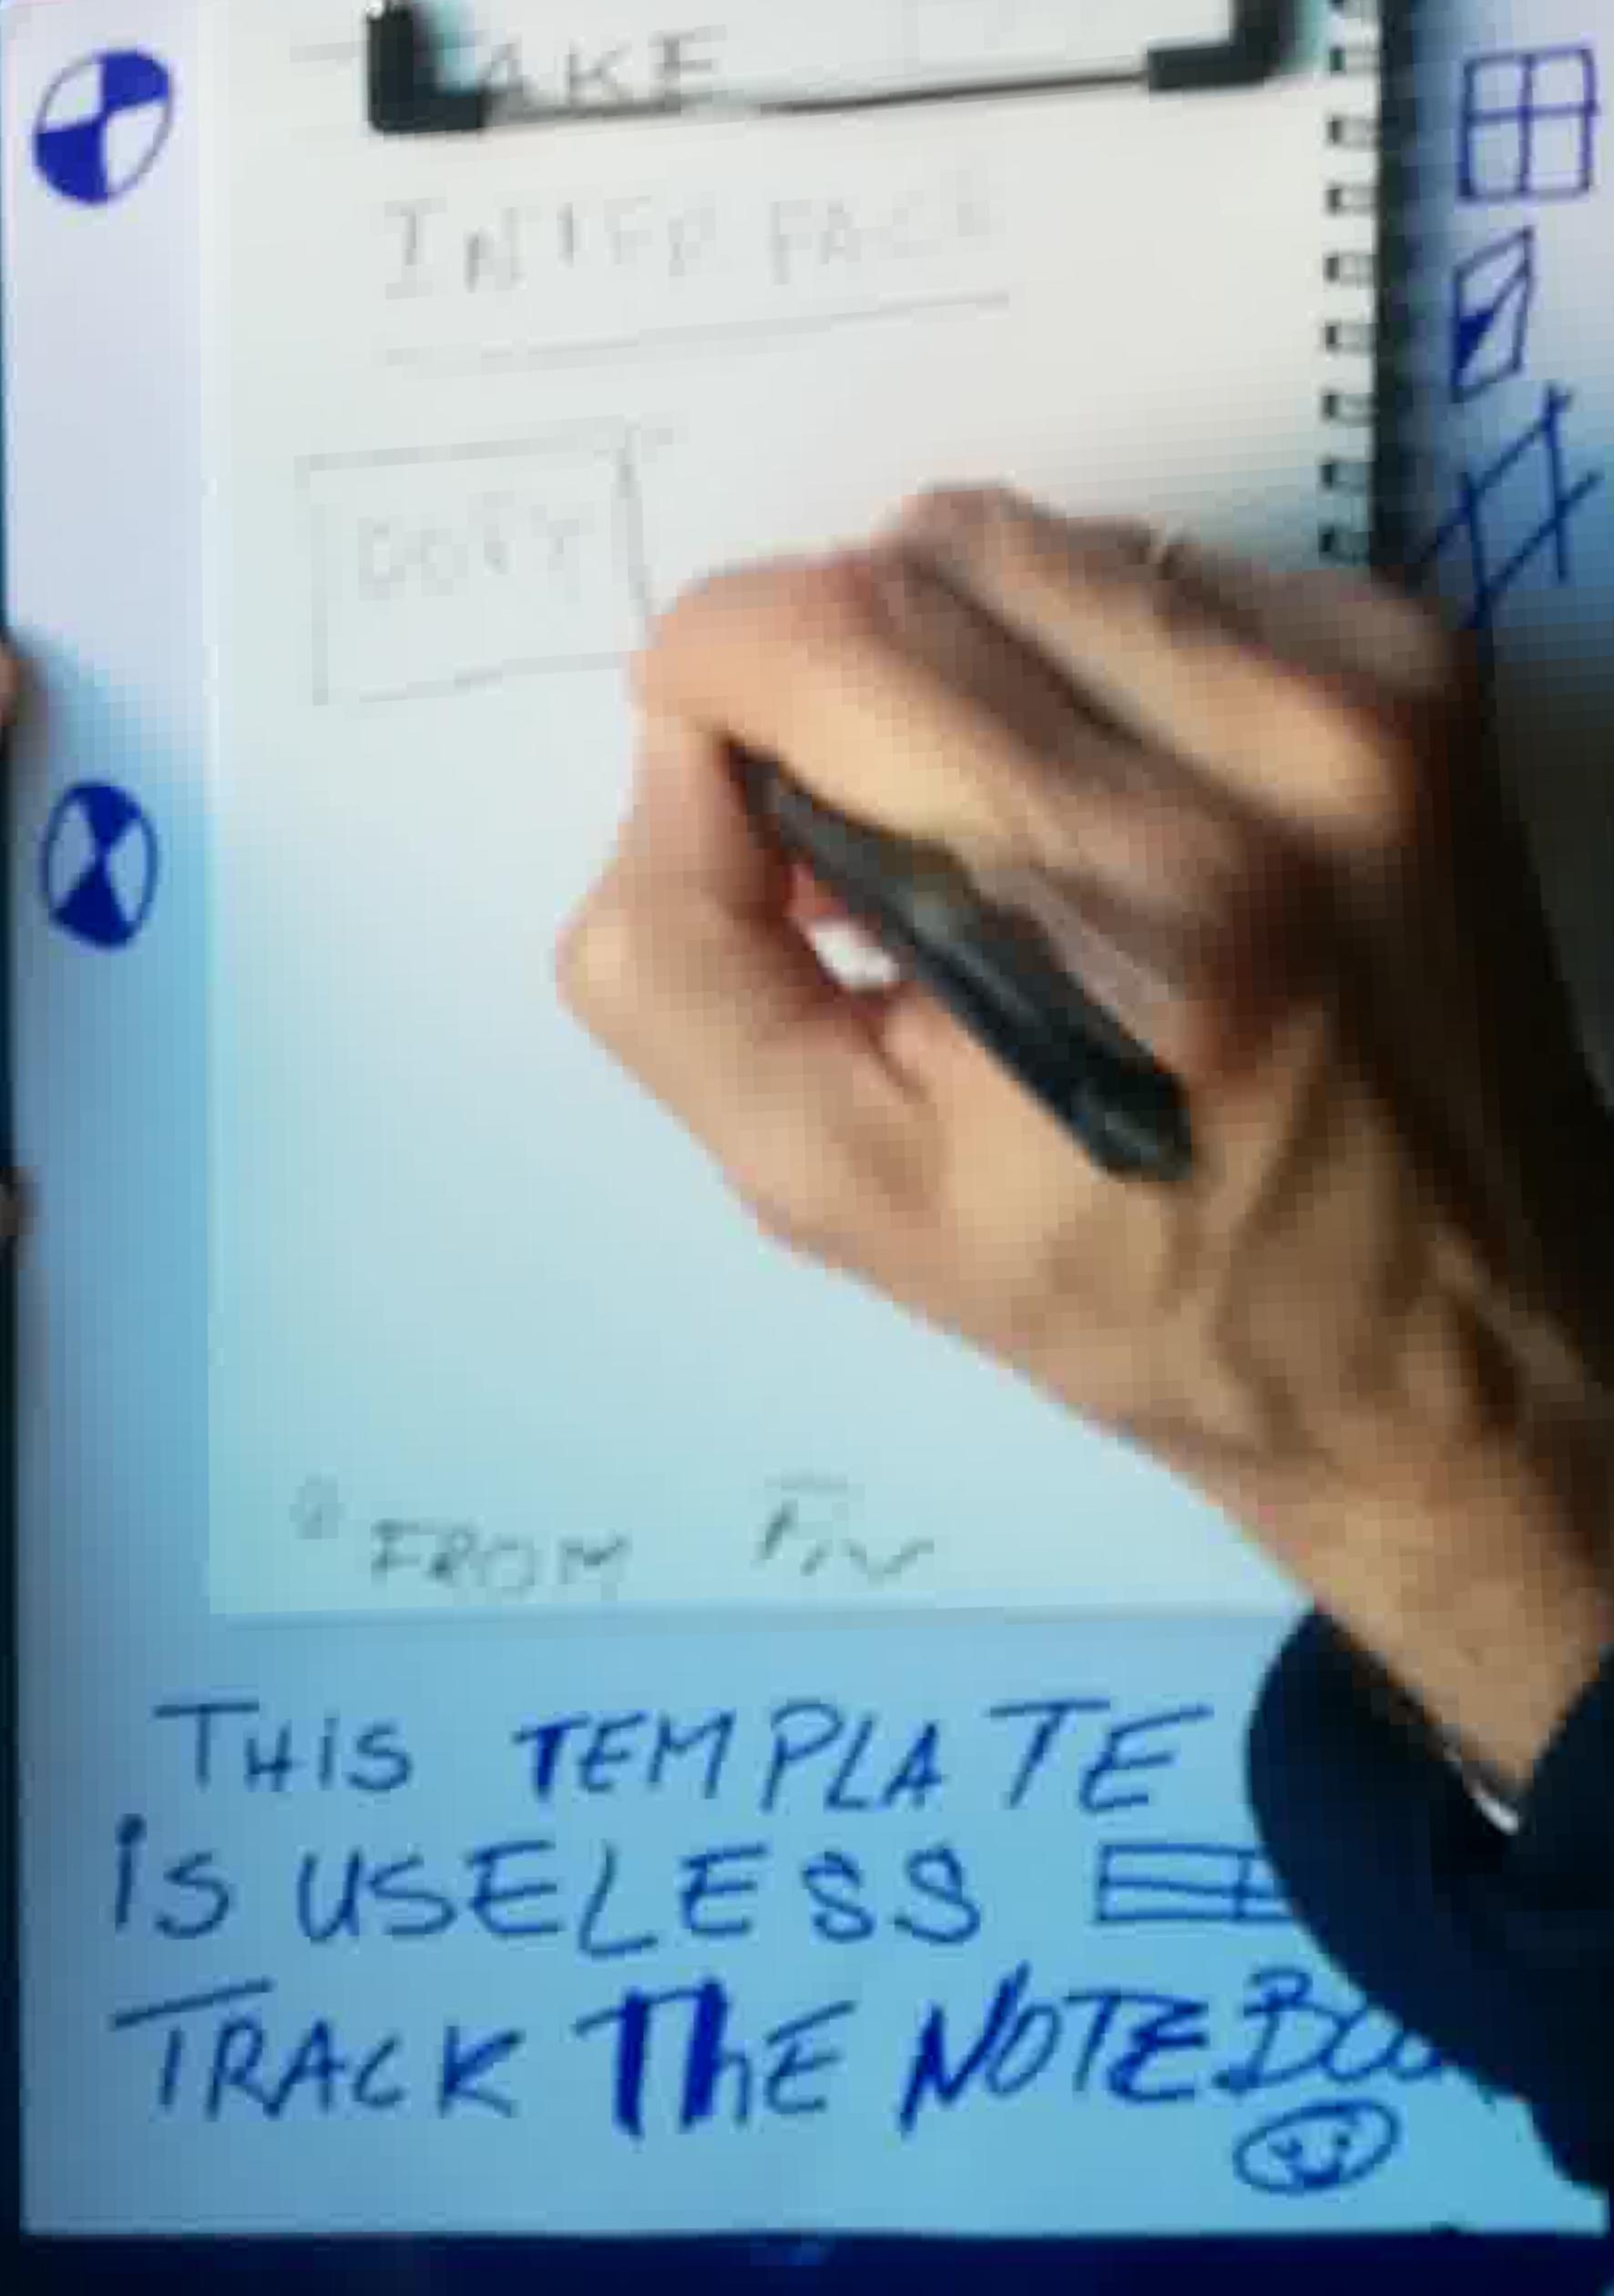 AKE
INTERFACE
FROM
THiS TEMPLATE
iS USELESS
TRACK ThE NOTEBOO